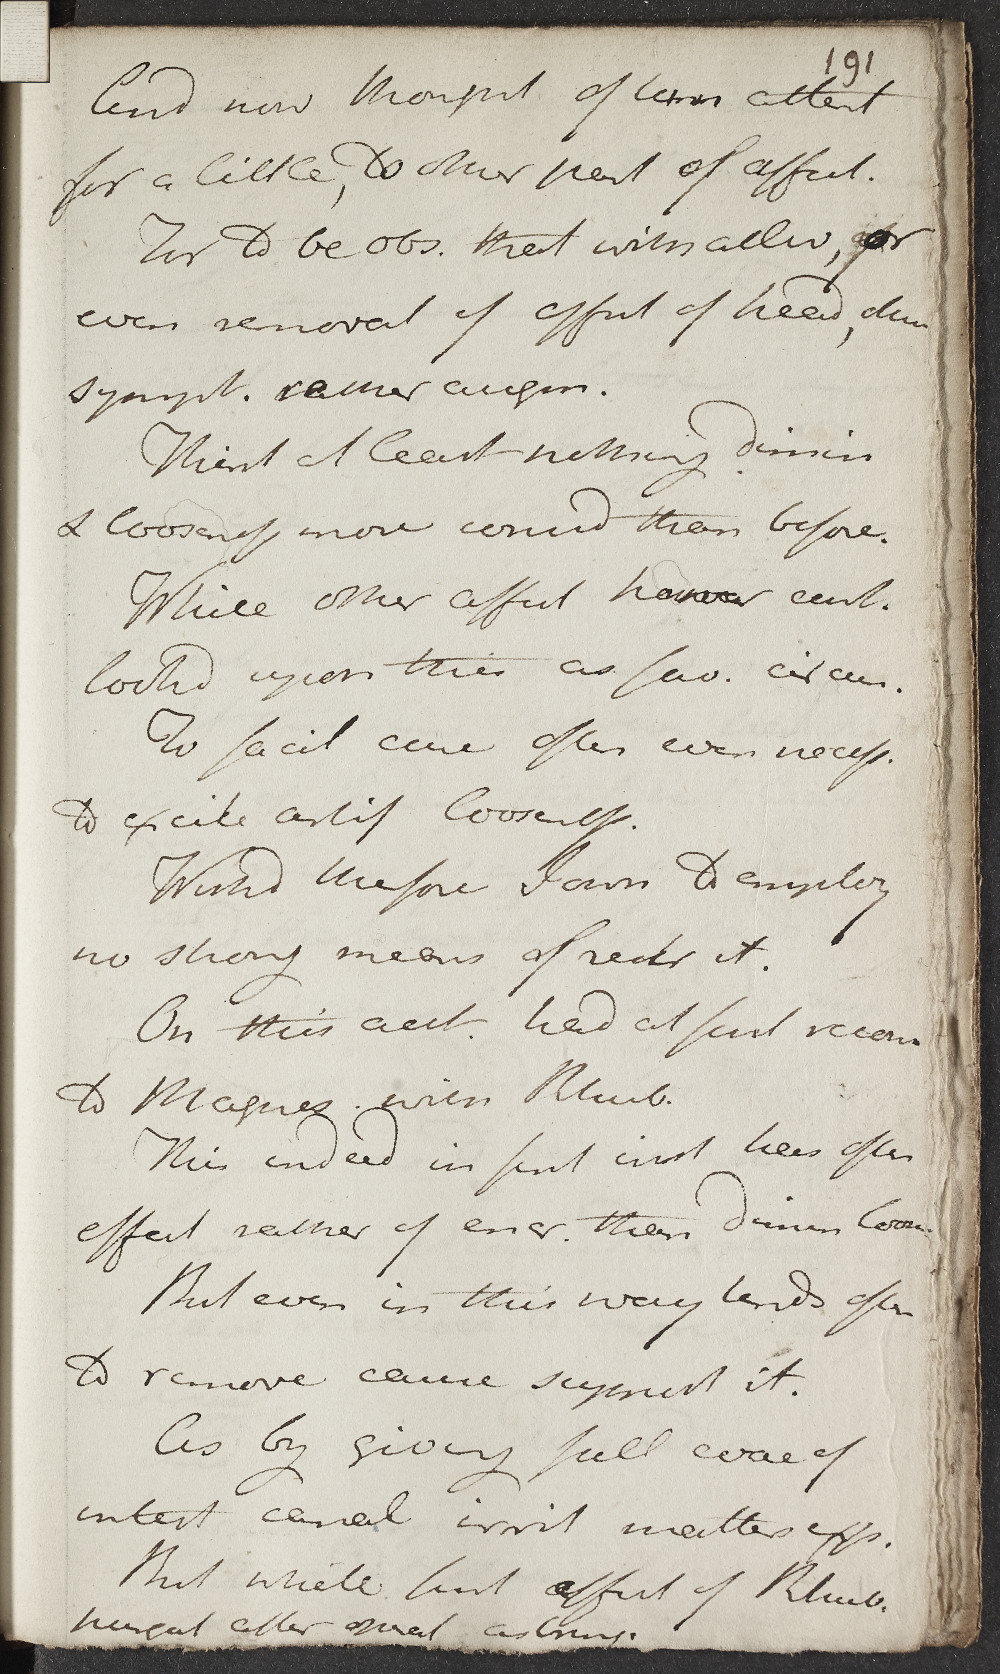 191
And now thought of turn attent
for a little, to other part of affect.
For to be obs. that with allev, or
even removal of affect of head, other
sympt. rather augm.
Thirst at least nothing dimin
& looseness more consid than before.
While other affect however cont.
look'd upon this as fav. circum.
To facil cure often even necess.
to excite artif looseness.
Wish'd therefore I own to employ
no strong means of restr it.
On this acct. had at first recour
to Magnes. with Rhub.
This indeed in first inst has often
effect rather of encr. than dimin loosen
But even in this way tends often
to remove cause support it.
As by giving full evac of
intest canal irrit matters exp.
But while first effect of Rhub.
purgat after operat astring.